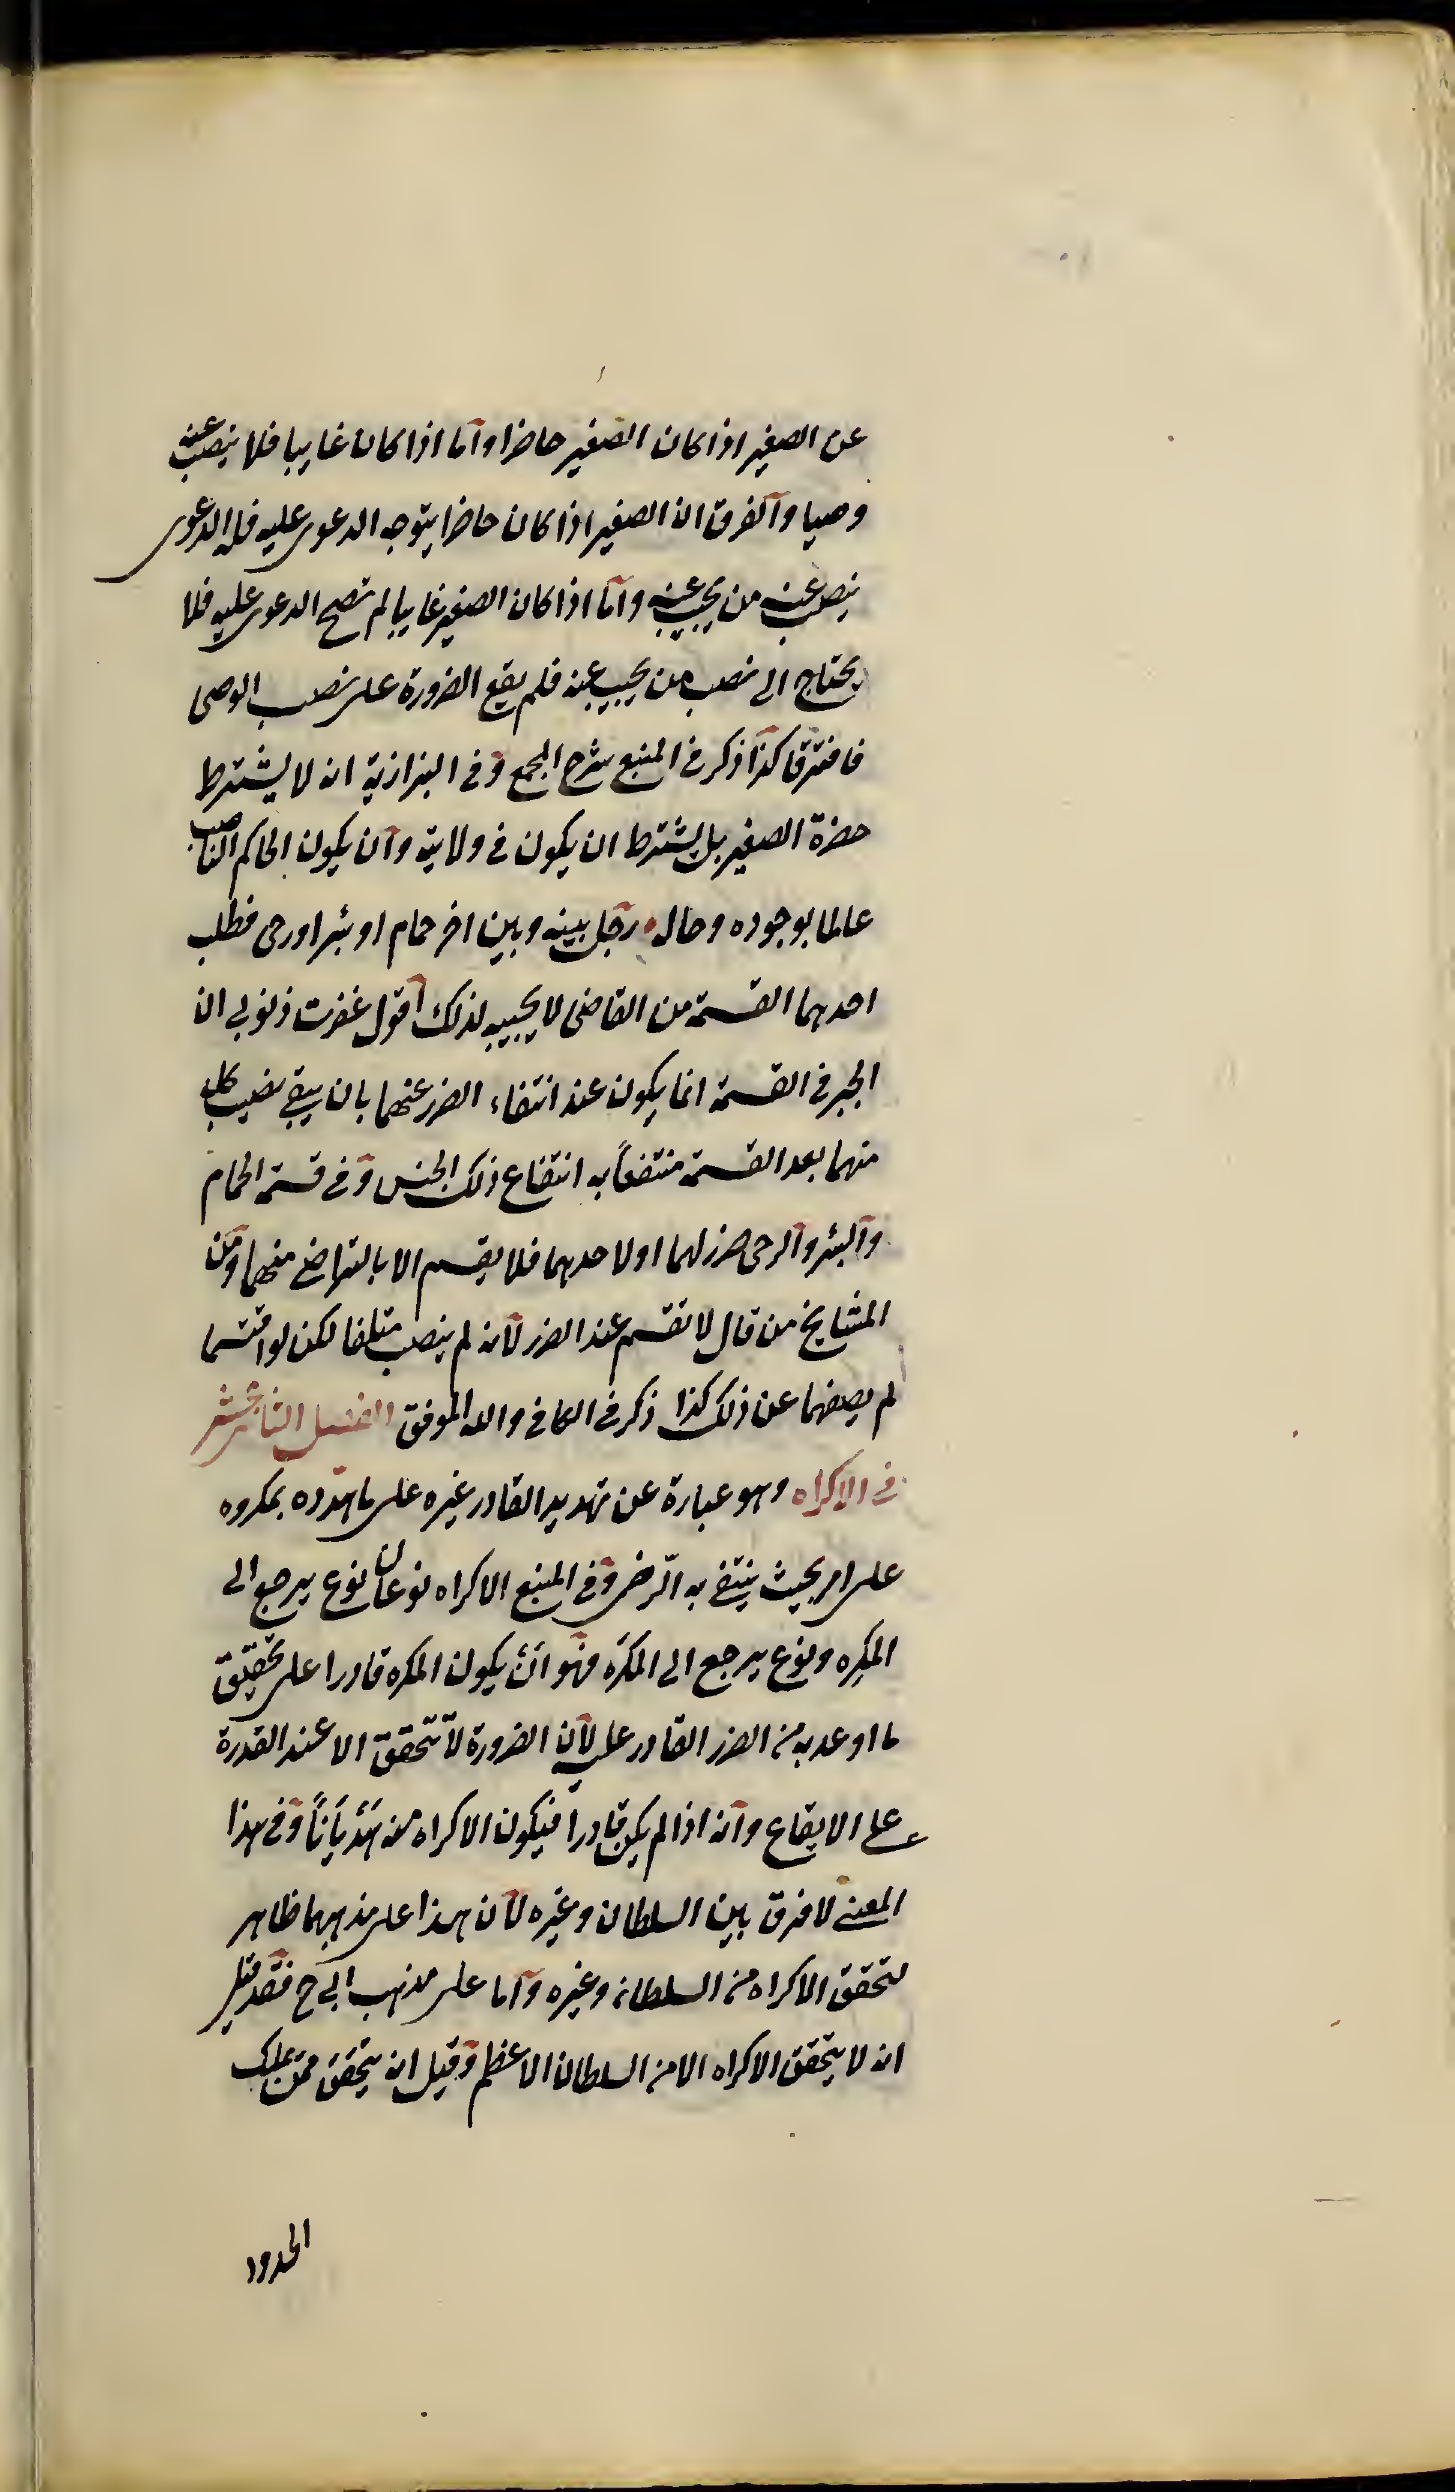 عن الصغير اذا كان الصغير حاضرا واما اذا كان غايبا فلا ينصب عنه
وصيا والفرق ان الصغير اذا كان حاضرا يتوجه الدعوى عليه فله الدعوى
ينصب عنه من يجيب عنه واما اذا كان الصغير غايبا لم تصح الدعوى عليه فلا
يحتاج الى نصب من يجيب عنه فلم يقع الضرورة على نصب الوصى
فافترقا كذا ذكر فى المنبع شرح المجمع وفى البزازية انه لا يشترط
حضرة الصغير بل يشترط ان يكون فى ولايته وان يكون الحاكم الناصب
عالما بوجوده وحاله رجل بينه وبين اخر حمام او بئر او رحى فطلب
احدهما القسمة من القاضى لا يجيبه لذلك اقول غفرت ذنوبى ان
الجبر فى القسمة انما يكون عند انتفاء الضرر عنهما بان يبقى نصيب كل
منهما بعد القسمة منتفعاً به انتفاع ذلك الجنس وفى قسمة الحمام
والبئر والرحى ضرر لهما او لاحدهما فلا يقسم الا بالتراضى منهما ومن
المشايخ من قال لا تقسم عند الضرر لانه لم ينصب متلفا لكن لو اقتسما
لم يمنعهما عن ذلك كذا ذكر فى الكافى والله الموفق الفصل الثانى عشر
فى الاكراه وهو عبارة عن تهديد القادر غيره على ما هدده بمكروه
على امر بحيث ينتفى به الرضى وفى المنبع الاكراه نوعان نوع يرجع الى
المكرِه ونوع يرجع الى المكرَه فهو ان يكون المكره قادرا على تحقيق
ما اوعد به من الضرر القادر عليه لان الضرورة لا تتحقق الا عند القدرة
على الايقاع وانه اذا لم يكن قادراً فيكون الاكراه منه هذياناً وفى هذا
المعنى لا فرق بين السلطان وغيره لان هذا على مذهبهما ظاهر
لتحقق الاكراه من السلطان وغيره واما على مذهب ابى ح فقد قيل
انه لا يتحقق الاكراه الا من السلطان الاعظم وقيل انه يتحقق ممن يملك
الحدود